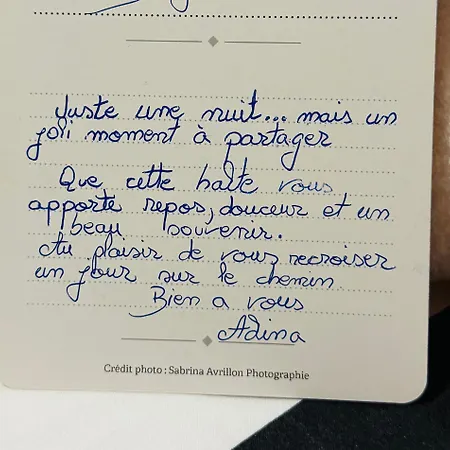 Juste une nuit... mais un
joli moment à partager
Que cette halte vous
apporte repos, douceur et un
beau souvenir.
Au plaisir de vous recroiser
un jour sur le chemin.
Bien a vous
Adina
Crédit photo : Sabrina Avrillon Photographie